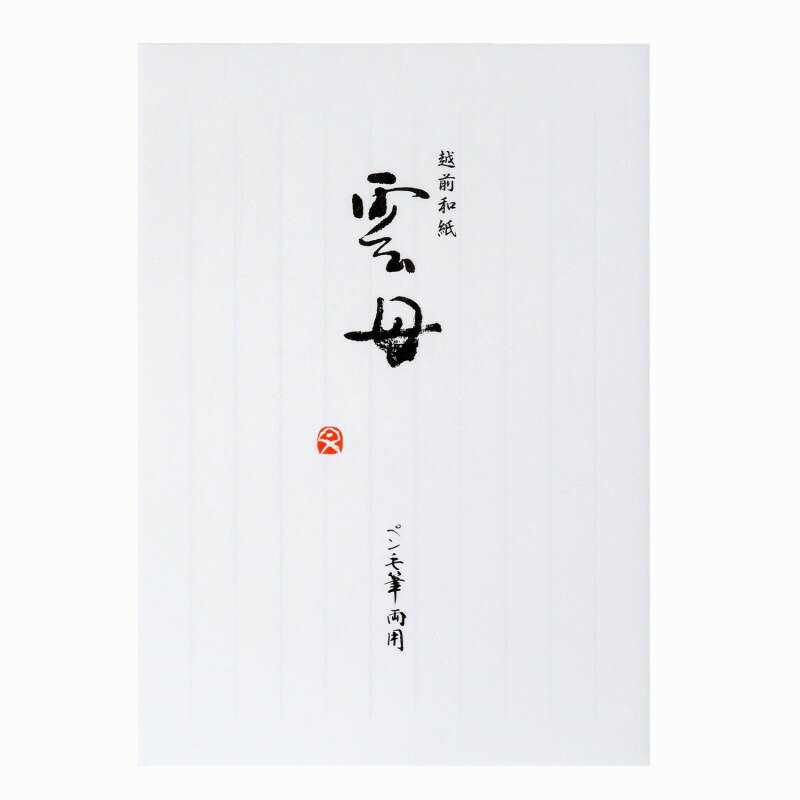 越前和紙
雲母
ペン毛筆両用